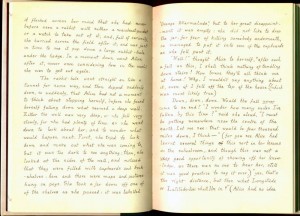 it flashed across her mind that she had never
before seen a rabbit with either a waistcoat-pocket
or a watch to take out of it, and, full of curiosity,
she hurried across the field after it, and was just
in time to see it pop down a large rabbit-hole
under the hedge. In a moment down went Alice
after it, never once considering how in the world
she was to get out again.
The rabbit-hole went straight on like a
tunnel for some way, and then dipped suddenly
down, so suddenly, that Alice had not a moment
to think about stopping herself, before she found
herself falling down what seemed a deep well.
Either the well was very deep, or she fell very
slowly, for she had plenty of time as she went
down to look about her, and to wonder what
would happen next. First, she tried to look
down and make out what she was coming to,
but it was too dark to see anything: then, she
looked at the sides of the well, and noticed
that they were filled with cupboards and book-
shelves: here and there were maps and pictures
hung on pegs. She took a jar down off one of
the shelves as she passed: it was labelled
"Orange Marmalade," but to her great disappoint-
ment it was empty: she did not like to drop
the jar for fear of killing somebody underneath,
so managed to put it into one of the cupboards
as she fell past it.
"Well!" thought Alice to herself, "after such
a fall as this, I shall think nothing of tumbling
down stairs! How brave they'll all think me
at home! Why, I wouldn't say anything about
it, even if I fell off the top of the house! (which
was most likely true.)
Down, down, down. Would the fall never
come to an end? "I wonder how many miles I've
fallen by this time?" said she aloud, "I must
be getting somewhere near the centre of the
earth. Let me see: that would be four thousand
miles down, I think—" (for you see Alice had
learnt several things of this sort in her lessons
in the schoolroom, and though this was not a
very good opportunity of showing off her know-
ledge, as there was no one to hear her, still
it was good practice to say it over,) "yes, that's
the right distance, but then what Longitude
or Latitude-line shall I be in?" (Alice had no idea